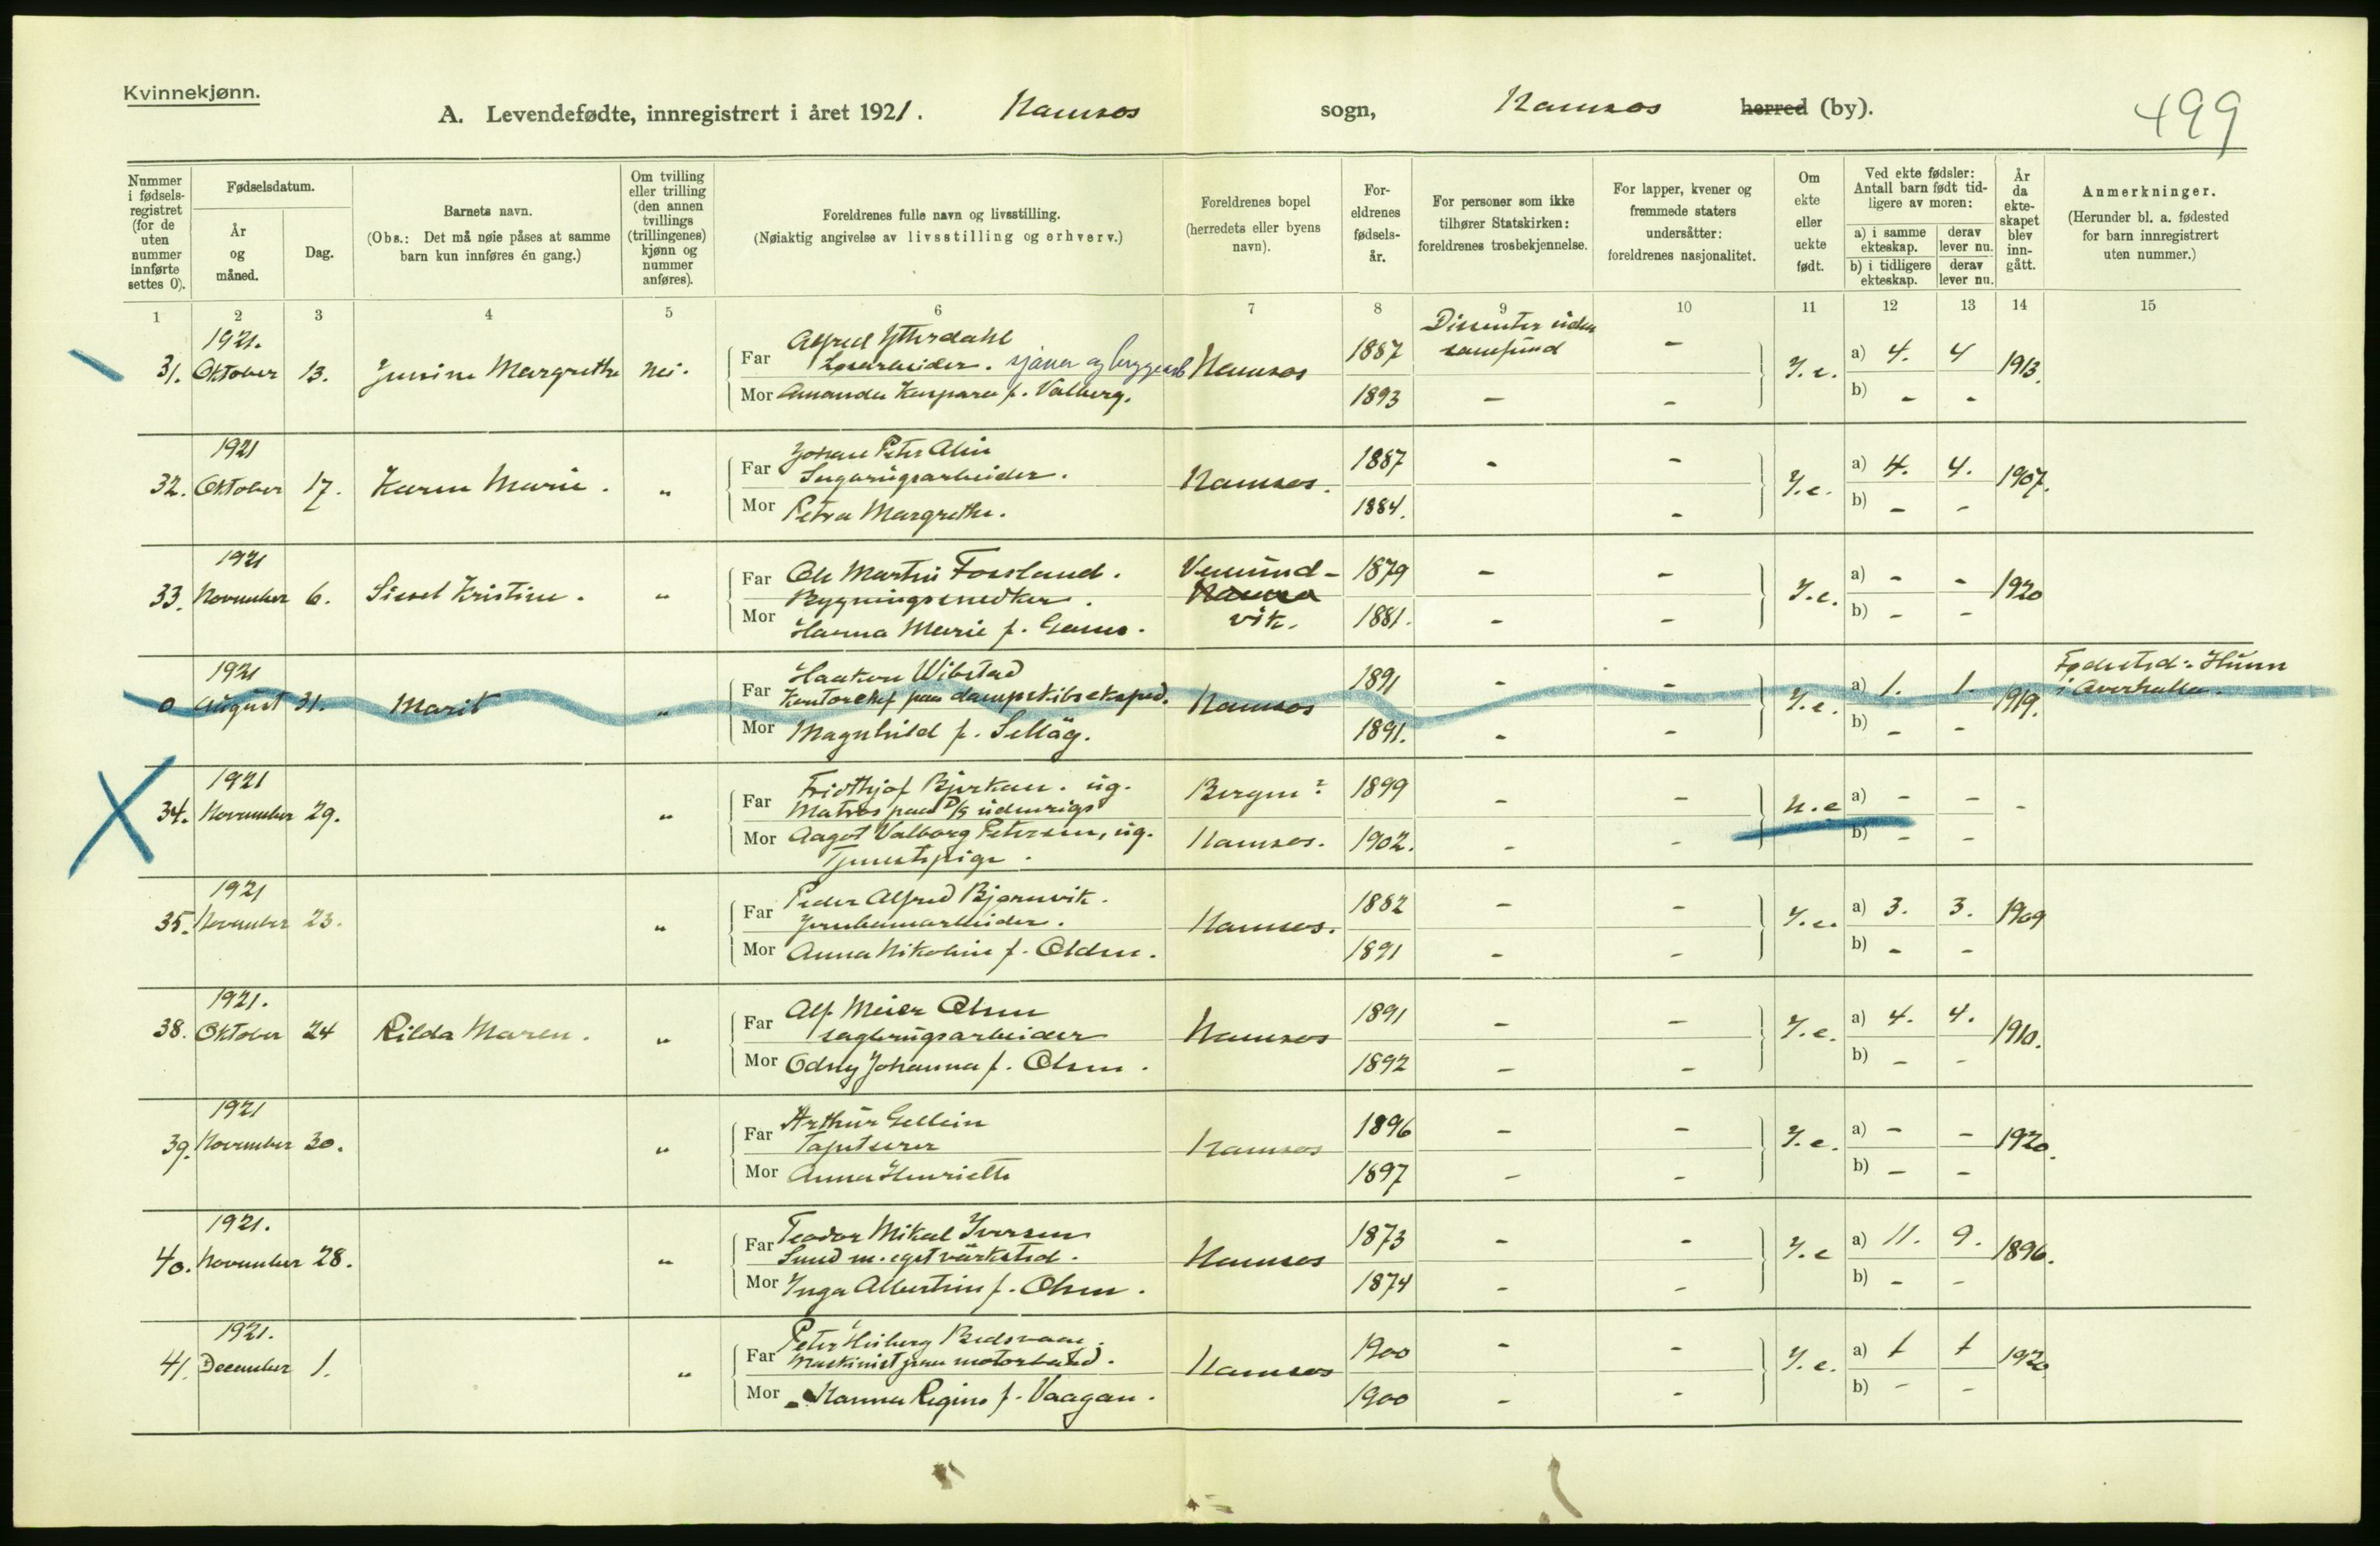 Kvinnekjønn.
A. Levendefødte, innregistrert i året 1921. Namsos sogn, Namsos herred (by).
499
Nummer i fødselsregistret (for de uten nummer innførte settes 0).
Fødselsdatum.
År og måned.
Dag.
Barnets navn.
(Obs.: Det må nøie påses at samme barn kun innføres én gang.)
Om tvilling eller trilling (den annen tvillings (trillingenes) kjønn og nummer anføres).
Foreldrenes fulle navn og livsstilling.
(Nøiaktig angivelse av livsstilling og erhverv.)
Foreldrenes bopel
(herredets eller byens navn).
Foreldrenes fødselsår.
For personer som ikke tilhører Statskirken: foreldrenes trosbekjennelse.
For lapper, kvener og fremmede staters undersåtter: foreldrenes nasjonalitet.
Om ekte eller uekte født.
Ved ekte fødsler: Antall barn født tidligere av moren:
a) i samme ekteskap. derav lever nu.
b) i tidligere ekteskap. derav lever nu.
År da ekteskapet blev inngått.
Anmerkninger.
(Herunder bl. a. fødested for barn innregistrert uten nummer.)
1 2 3 4 5 6 7 8 9 10 11 12 13 14 15
1921.
31. Oktober 13. Junine Margrethe Nei.
Far Alfred Ytterdahl
Løsarbeider. sjauer og bryggearb
Namsos 1887 Dissenter uden samfund -
Mor Amanda Kaspara f. Valberg.
1893 - -
Æ. e. a) 4. 4 1913.
b) - -
1921
32. Oktober 17. Karen Marie. "
Far Johan Peter Alin
Sagbrugsarbeider.
Namsos. 1887 - -
Mor Petra Margrethe.
1884. -
Æ.e. a) 4. 4. 1907.
b) - -
1921
33. November 6. Sissel Kristine. "
Far Ole Martin Fossland.
Bygningssnedker.
Vemund-
vik.
1879 - -
Mor Hanna Marie f.
1881. - -
Æ.e. a) - - 1920
b) - -
1921
0 August 31. Marit "
Far Haakon Wibstad
Kontorchef paa dampskibseksped.
Namsos 1891 - -
Mor Magnhild f. Selläg.
1891. - -
Æ.e. a) 1. 1. 1919.
b) - -
Fødested: Hunn
i Overhalla.
1921
34. November 29. "
Far Fridthjof Bjørkan. ug.
Matros paa D/S udenrigs
Bergen? 1899 - -
Mor Aagot Valborg Petersen, ug.
Tjenestepige.
Namsos. 1902. - -
U.e a) - - -
b) - -
1921
35. November 23. "
Far Peder Alfred Bjørnvik.
Jernbanearbeider.
Namsos. 1882 - -
Mor Anna Nikoline f. Olden.
1891 - -
Æ.e. a) 3. 3. 1909
b) - -
1921.
38. Oktober 24 Rilda Maren. "
Far Alf Meier Olsen
sagbrugsarbeider
Namsos 1891 - -
Mor Odny Johanna f. Olsen.
1892 - -
Æ.e. a) 4. 4. 1910.
b) - -
1921
39. November 30. "
Far Arthur Gellein
Tapetserer
Namsos 1896 - -
Mor Anna Henriette
1897 - -
Æ.e. a) - - 1920.
b) - -
1921.
40. November 28. "
Far Teodor Mikal Iversen
Smed m. eget värksted.
Namsos 1873 - -
Mor Inga Albertine f. Olsen.
1874 - -
Æ.e a) 11. 9. 1896.
b) - -
1921.
41. December 1. "
Far Peter Heiberg
Maskinist paa motorbaad.
Namsos 1900 - -
Mor Hanna Regine f. Vaagan.
1900 - -
Æ.e. a) 1 1 1920
b) - -